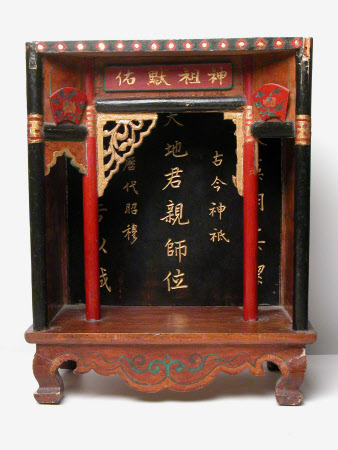 神祖默佑
古今神祇
天地君親師位
歷代昭穆